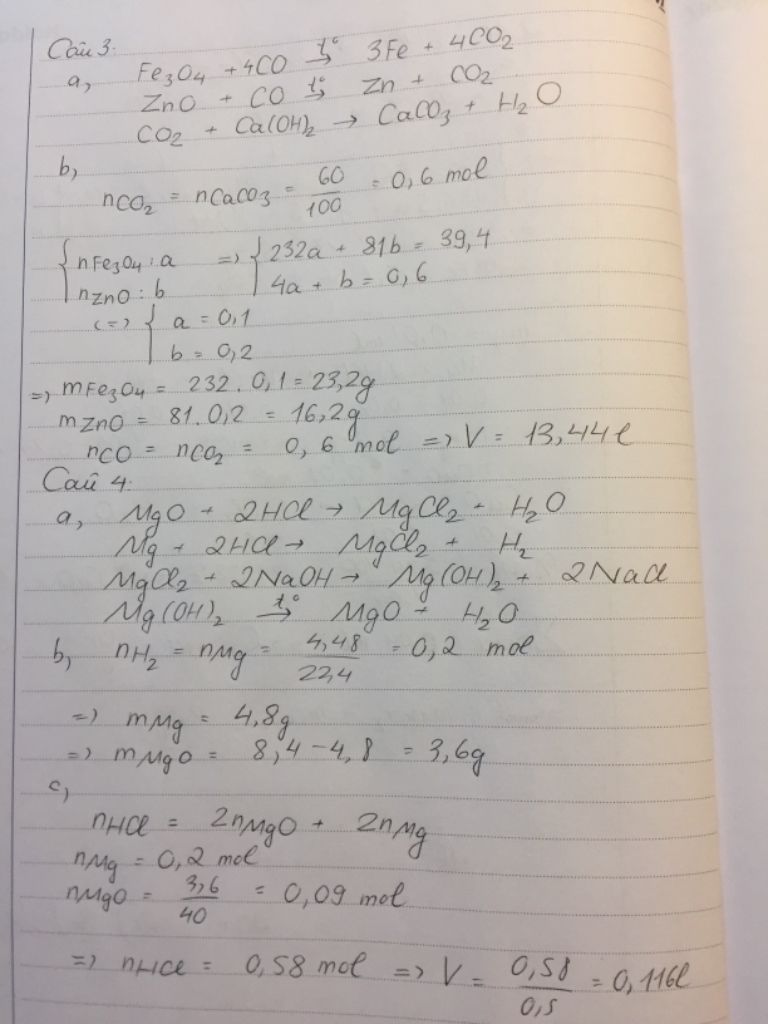 Câu 3:
a, Fe3O4 + 4CO →(t°) 3Fe + 4CO2
ZnO + CO →(t°) Zn + CO2
CO2 + Ca(OH)2 → CaCO3 + H2O
b,
nCO2 = nCaCO3 = 60/100 = 0,6 mol
{ nFe3O4 : a => { 232a + 81b = 39,4
nZnO : b 4a + b = 0,6
<=> { a = 0,1
b = 0,2
=> mFe3O4 = 232 . 0,1 = 23,2g
mZnO = 81.0,2 = 16,2g
nCO = nCO2 = 0,6 mol => V = 13,44l
Câu 4:
a, MgO + 2HCl → MgCl2 + H2O
Mg + 2HCl → MgCl2 + H2
MgCl2 + 2NaOH → Mg(OH)2 + 2NaCl
Mg(OH)2 →(t°) MgO + H2O
b, nH2 = nMg = 4,48/22,4 = 0,2 mol
=> mMg = 4,8g
=> mMgO = 8,4 - 4,8 = 3,6g
c,
nHCl = 2nMgO + 2nMg
nMg = 0,2 mol
nMgO = 3,6/40 = 0,09 mol
=> nHCl = 0,58 mol => V = 0,58/0,5 = 0,116l